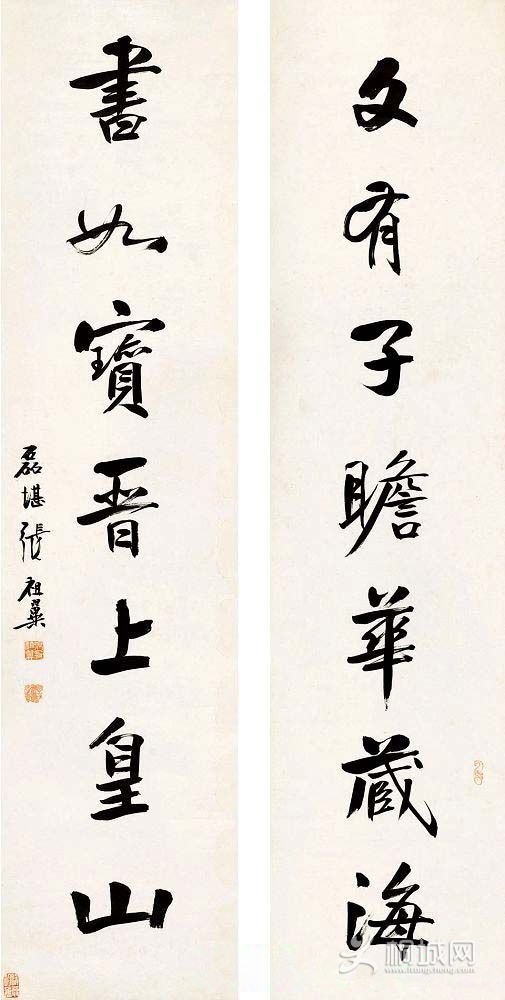 文有子瞻華藏海
書如寶晉上皇山
磊堪張祖翼
柏城网